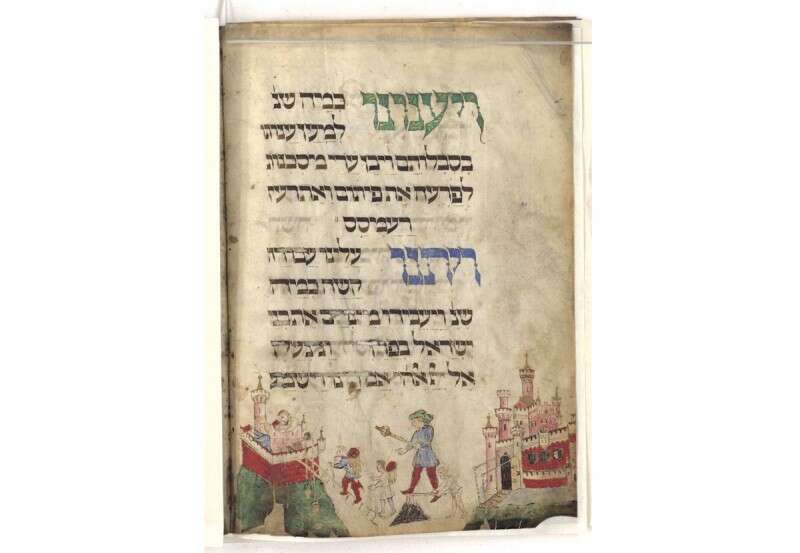 ויענונו כמה שנ
למען ענותו
בסבלותם ויבן ערי מיסכנות
לפרעה את פיתום ואת
רעמסס
ויתנו עלינו עבודה
קשה כמה
שנ ויעבידו מיצרים את בני
ישראל בפרך ונצעק
אל אלהי אבותינו וישמע